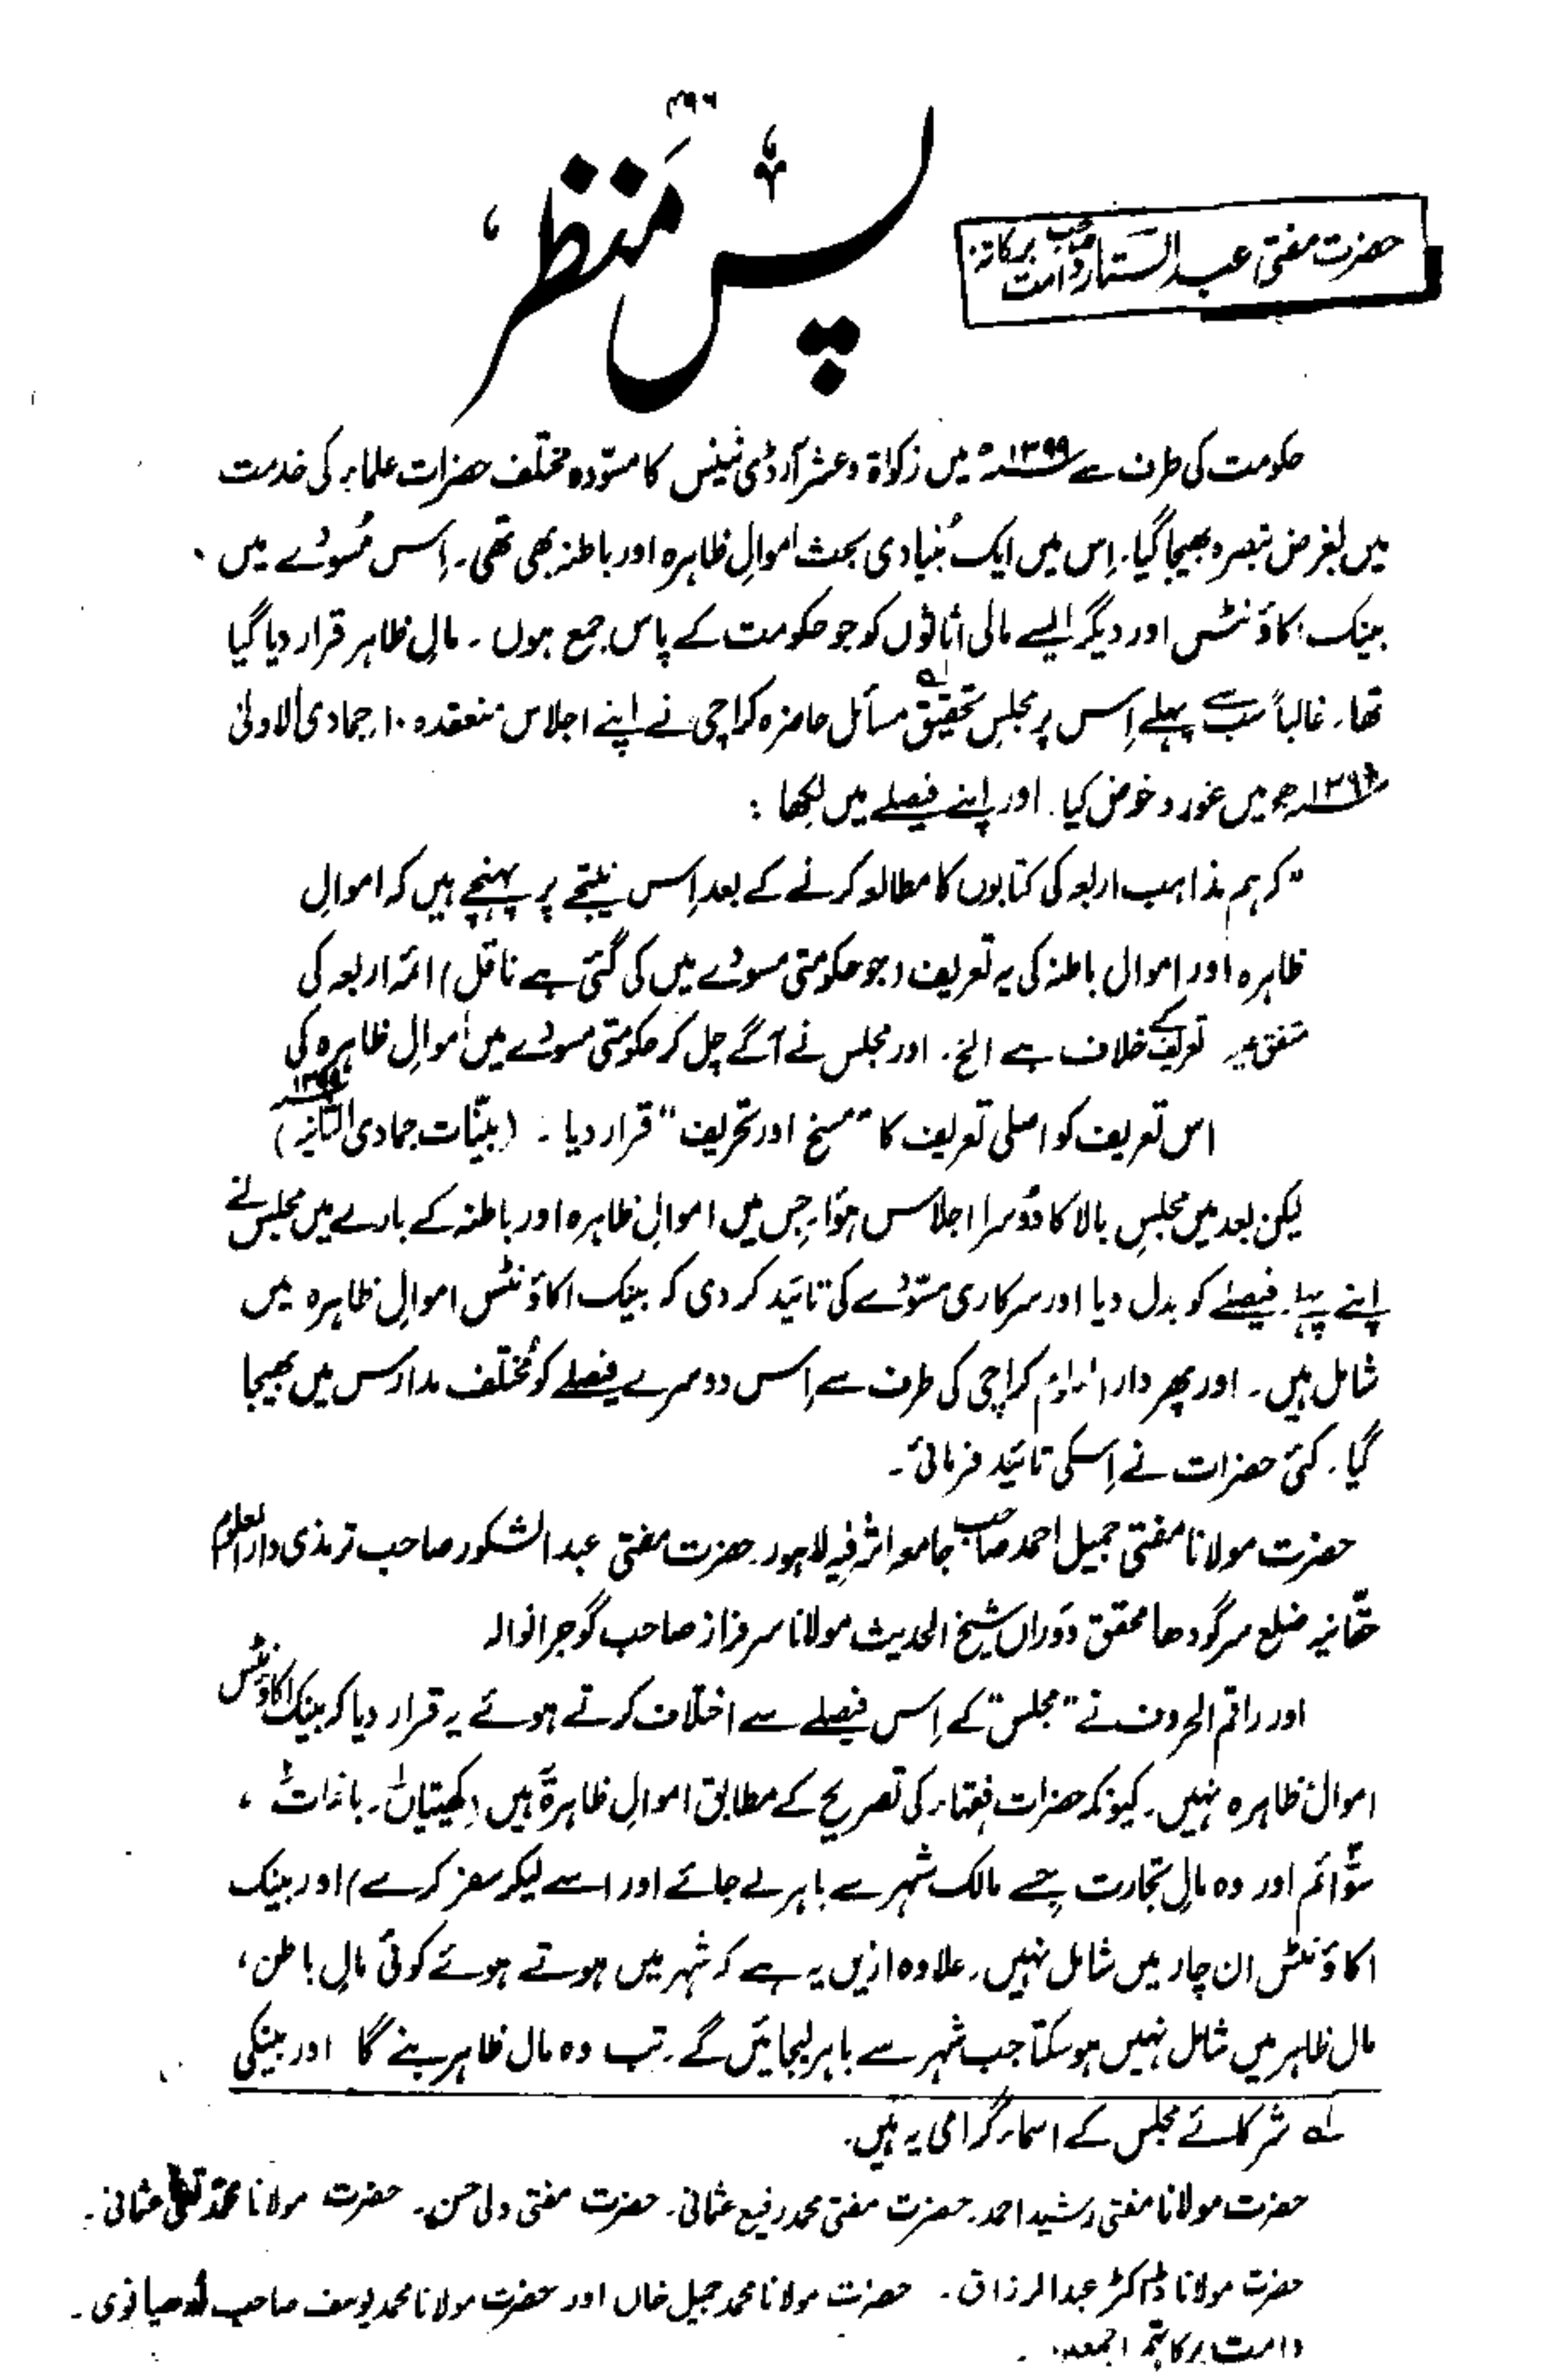 ۴۹۶
پس منظر
حضرت مفتی عبدالستار صاحب دامت برکاتہم
حکومت کی طرف سے ۱۳۹۹ھ میں زکوٰۃ و عشر آرڈی نینس کا مسوّدہ مختلف حضرات علماء کی خدمت
میں بغرض تبصرہ بھیجا گیا۔ اِس میں ایک بُنیادی بحث اموالِ ظاہرہ اور باطنہ بھی تھی۔ اِس مُسودے میں
بینک اکاؤنٹس اور دیگر ایسے مالی اثاثوں کو جو حکومت کے پاس جمع ہوں۔ مالِ ظاہر قرار دیا گیا
تھا۔ غالباً سب سے پہلے اِس پر مجلسِ تحقیق مسائل حاضرہ کراچی نے اپنے اجلاس منعقدہ ۱۰ جمادی الاولیٰ
ھ میں غور و خوض کیا۔ اور اپنے فیصلے میں لکھا :
"کہ ہم مذاہب اربعہ کی کتابوں کا مطالعہ کرنے کے بعد اِس نتیجے پر پہنچے ہیں کہ اموالِ
ظاہرہ اور اموال باطنہ کی یہ تعریف (جو حکومتی مسودے میں کی گئی ہے ناقل) ائمہ اربعہ کی
متفق علیہ تعریف کے خلاف ہے الخ۔ اور مجلس نے آگے چل کر حکومتی مسودے میں اموالِ ظاہرہ کی
اس تعریف کو اصلی تعریف کا "مسخ اور تحریف" قرار دیا۔ (بیّنات جمادی الثانیہ)
لیکن بعد میں مجلسِ بالا کا دُوسرا اجلاس ہوَا۔ جِس میں اموالِ ظاہرہ اور باطنہ کے بارے میں مجلس نے
اپنے پہلے فیصلے کو بدل دیا اور سرکاری مسوّدے کی تائید کر دی کہ بینک اکاؤنٹس اموالِ ظاہرہ میں
شامل ہیں۔ اور پھر دارالعلوم کراچی کی طرف سے اِس دوسرے فیصلے کو مُختلف مدارس میں بھیجا
گیا۔ کئی حضرات نے اِسکی تائید فرمائی۔
حضرت مولانا مفتی جمیل احمد صاحب جامعہ اشرفیہ لاہور۔ حضرت مفتی عبدالشکور صاحب ترمذی دارالعلوم
حقّانیہ ضلع سرگودھا محقق دَوراں شیخ الحدیث مولانا سرفراز صاحب گوجرانوالہ
اور راقم الحروف نے "مجلس" کے اِس فیصلے سے اختلاف کرتے ہوئے یہ قرار دیا کہ بینک اکاؤنٹس
اموالِ ظاہرہ نہیں۔ کیونکہ حضرات فقہاء کی تصریح کے مطابق اموالِ ظاہرہ یہ ہیں (کھیتیاں۱۔ باغات۲،
سوَائم۳ اور وہ مالِ تجارت جسے مالک شہر سے باہر لے جائے اور اسے لیکر سفر کرے) اور بینک
اکاؤنٹس ان چار میں شامل نہیں۔ علاوہ ازیں یہ ہے کہ شہر میں ہوتے ہوئے کوئی مالِ باطن،
مال ظاہر میں شامل نہیں ہو سکتا جب شہر سے باہر لیجائیں گے۔ تب وہ مال ظاہر بنے گا اور بینکی
لہ شرکائے مجلس کے اسماء گرامی یہ ہیں۔
حضرت مولانا مفتی رشید احمد۔ حضرت مفتی محمد رفیع عثمانی۔ حضرت مفتی ولی حسن۔ حضرت مولانا محمد تقی عثمانی۔
حضرت مولانا ڈاکٹر عبدالرزاق۔ حضرت مولانا محمد جمیل خاں اور حضرت مولانا محمد یوسف صاحب لدھیانوی۔
دامت برکاتہم اجمعین۔